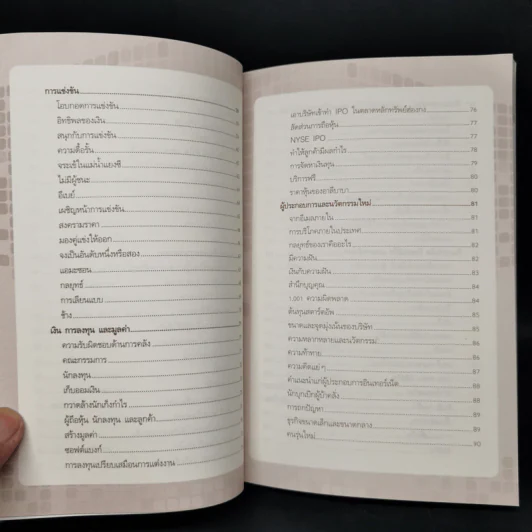 การแข่งขัน
โอบกอดการแข่งขัน
อิทธิพลของเงิน
สนุกกับการแข่งขัน
ความดื้อรั้น
จระเข้ในแม่น้ำแยงซี
ไม่มีผู้ชนะ
อีเบย์
เผชิญหน้าการแข่งขัน
สงครามราคา
มองคู่แข่งให้ออก
จงเป็นอันดับหนึ่งหรือสอง
แอมะซอน
กลยุทธ์
การเลียนแบบ
ช้าง
เงิน การลงทุน และมูลค่า
ความรับผิดชอบด้านการคลัง
คณะกรรมการ
นักลงทุน
เก็บออมเงิน
กวาดล้างนักเก็งกำไร
ผู้ถือหุ้น นักลงทุน และลูกค้า
สร้างมูลค่า
ซอฟต์แบงก์
การลงทุนเปรียบเสมือนการแต่งงาน
เอาบริษัทเข้าทำ IPO ในตลาดหลักทรัพย์ฮ่องกง 76
สัดส่วนการถือหุ้น 77
NYSE IPO 77
ทำให้ลูกค้ามีผลกำไร 78
การจัดหาเงินทุน 79
บริการฟรี 80
ราคาหุ้นของอาลีบาบา 80
ผู้ประกอบการและนวัตกรรมใหม่ 81
จากอีเมลภายใน 81
การบริโภคภายในประเทศ 81
กลยุทธ์ของเราคืออะไร 82
มีความฝัน 82
เงินกับความฝัน 83
สำนึกบุญคุณ 84
1,001 ความผิดพลาด 84
ต้นทุนสตาร์ตอัพ 84
ขนาดและจุดมุ่งเน้นของบริษัท 85
ความหลากหลายและนวัตกรรม 86
ความท้าทาย 86
ความคิดแย่ๆ 87
คำแนะนำแก่ผู้ประกอบการอินเทอร์เน็ต 88
นักบุกเบิกผู้บ้าคลั่ง 88
การยกปัญหา 89
ธุรกิจขนาดเล็กและขนาดกลาง 89
คนรุ่นใหม่ 90